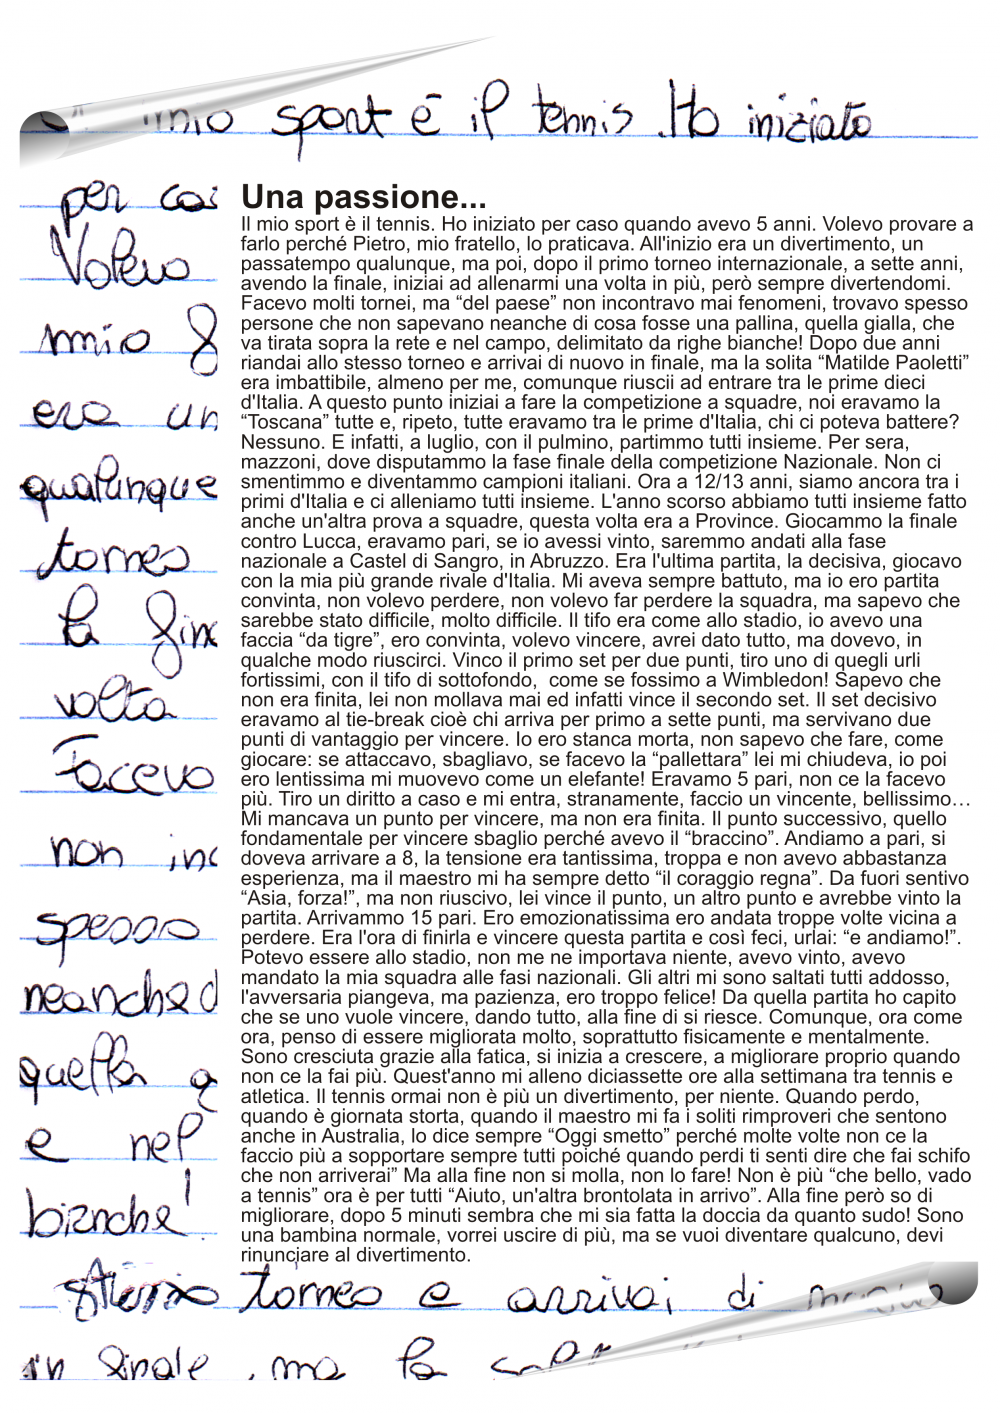 mio sport è il tennis. Ho iniziato
per cas
Volevo
mio f
era un
qualunque
torneo
la fina
volta
Facevo
non inc
spesso
neanche d
quella g
e nel
bianche!
Una passione...
Il mio sport è il tennis. Ho iniziato per caso quando avevo 5 anni. Volevo provare a
farlo perché Pietro, mio fratello, lo praticava. All'inizio era un divertimento, un
passatempo qualunque, ma poi, dopo il primo torneo internazionale, a sette anni,
avendo la finale, iniziai ad allenarmi una volta in più, però sempre divertendomi.
Facevo molti tornei, ma “del paese” non incontravo mai fenomeni, trovavo spesso
persone che non sapevano neanche di cosa fosse una pallina, quella gialla, che
va tirata sopra la rete e nel campo, delimitato da righe bianche! Dopo due anni
riandai allo stesso torneo e arrivai di nuovo in finale, ma la solita “Matilde Paoletti”
era imbattibile, almeno per me, comunque riuscii ad entrare tra le prime dieci
d'Italia. A questo punto iniziai a fare la competizione a squadre, noi eravamo la
“Toscana” tutte e, ripeto, tutte eravamo tra le prime d'Italia, chi ci poteva battere?
Nessuno. E infatti, a luglio, con il pulmino, partimmo tutti insieme. Per sera,
mazzoni, dove disputammo la fase finale della competizione Nazionale. Non ci
smentimmo e diventammo campioni italiani. Ora a 12/13 anni, siamo ancora tra i
primi d'Italia e ci alleniamo tutti insieme. L'anno scorso abbiamo tutti insieme fatto
anche un'altra prova a squadre, questa volta era a Province. Giocammo la finale
contro Lucca, eravamo pari, se io avessi vinto, saremmo andati alla fase
nazionale a Castel di Sangro, in Abruzzo. Era l'ultima partita, la decisiva, giocavo
con la mia più grande rivale d'Italia. Mi aveva sempre battuto, ma io ero partita
convinta, non volevo perdere, non volevo far perdere la squadra, ma sapevo che
sarebbe stato difficile, molto difficile. Il tifo era come allo stadio, io avevo una
faccia “da tigre”, ero convinta, volevo vincere, avrei dato tutto, ma dovevo, in
qualche modo riuscirci. Vinco il primo set per due punti, tiro uno di quegli urli
fortissimi, con il tifo di sottofondo,  come se fossimo a Wimbledon! Sapevo che
non era finita, lei non mollava mai ed infatti vince il secondo set. Il set decisivo
eravamo al tie-break cioè chi arriva per primo a sette punti, ma servivano due
punti di vantaggio per vincere. Io ero stanca morta, non sapevo che fare, come
giocare: se attaccavo, sbagliavo, se facevo la “pallettara” lei mi chiudeva, io poi
ero lentissima mi muovevo come un elefante! Eravamo 5 pari, non ce la facevo
più. Tiro un diritto a caso e mi entra, stranamente, faccio un vincente, bellissimo…
Mi mancava un punto per vincere, ma non era finita. Il punto successivo, quello
fondamentale per vincere sbaglio perché avevo il “braccino”. Andiamo a pari, si
doveva arrivare a 8, la tensione era tantissima, troppa e non avevo abbastanza
esperienza, ma il maestro mi ha sempre detto “il coraggio regna”. Da fuori sentivo
“Asia, forza!”, ma non riuscivo, lei vince il punto, un altro punto e avrebbe vinto la
partita. Arrivammo 15 pari. Ero emozionatissima ero andata troppe volte vicina a
perdere. Era l'ora di finirla e vincere questa partita e così feci, urlai: “e andiamo!”.
Potevo essere allo stadio, non me ne importava niente, avevo vinto, avevo
mandato la mia squadra alle fasi nazionali. Gli altri mi sono saltati tutti addosso,
l'avversaria piangeva, ma pazienza, ero troppo felice! Da quella partita ho capito
che se uno vuole vincere, dando tutto, alla fine di si riesce. Comunque, ora come
ora, penso di essere migliorata molto, soprattutto fisicamente e mentalmente.
Sono cresciuta grazie alla fatica, si inizia a crescere, a migliorare proprio quando
non ce la fai più. Quest'anno mi alleno diciassette ore alla settimana tra tennis e
atletica. Il tennis ormai non è più un divertimento, per niente. Quando perdo,
quando è giornata storta, quando il maestro mi fa i soliti rimproveri che sentono
anche in Australia, lo dice sempre “Oggi smetto” perché molte volte non ce la
faccio più a sopportare sempre tutti poiché quando perdi ti senti dire che fai schifo
che non arriverai” Ma alla fine non si molla, non lo fare! Non è più “che bello, vado
a tennis” ora è per tutti “Aiuto, un'altra brontolata in arrivo”. Alla fine però so di
migliorare, dopo 5 minuti sembra che mi sia fatta la doccia da quanto sudo! Sono
una bambina normale, vorrei uscire di più, ma se vuoi diventare qualcuno, devi
rinunciare al divertimento.
stesso torneo e arrivai di nuovo
in finale, ma la